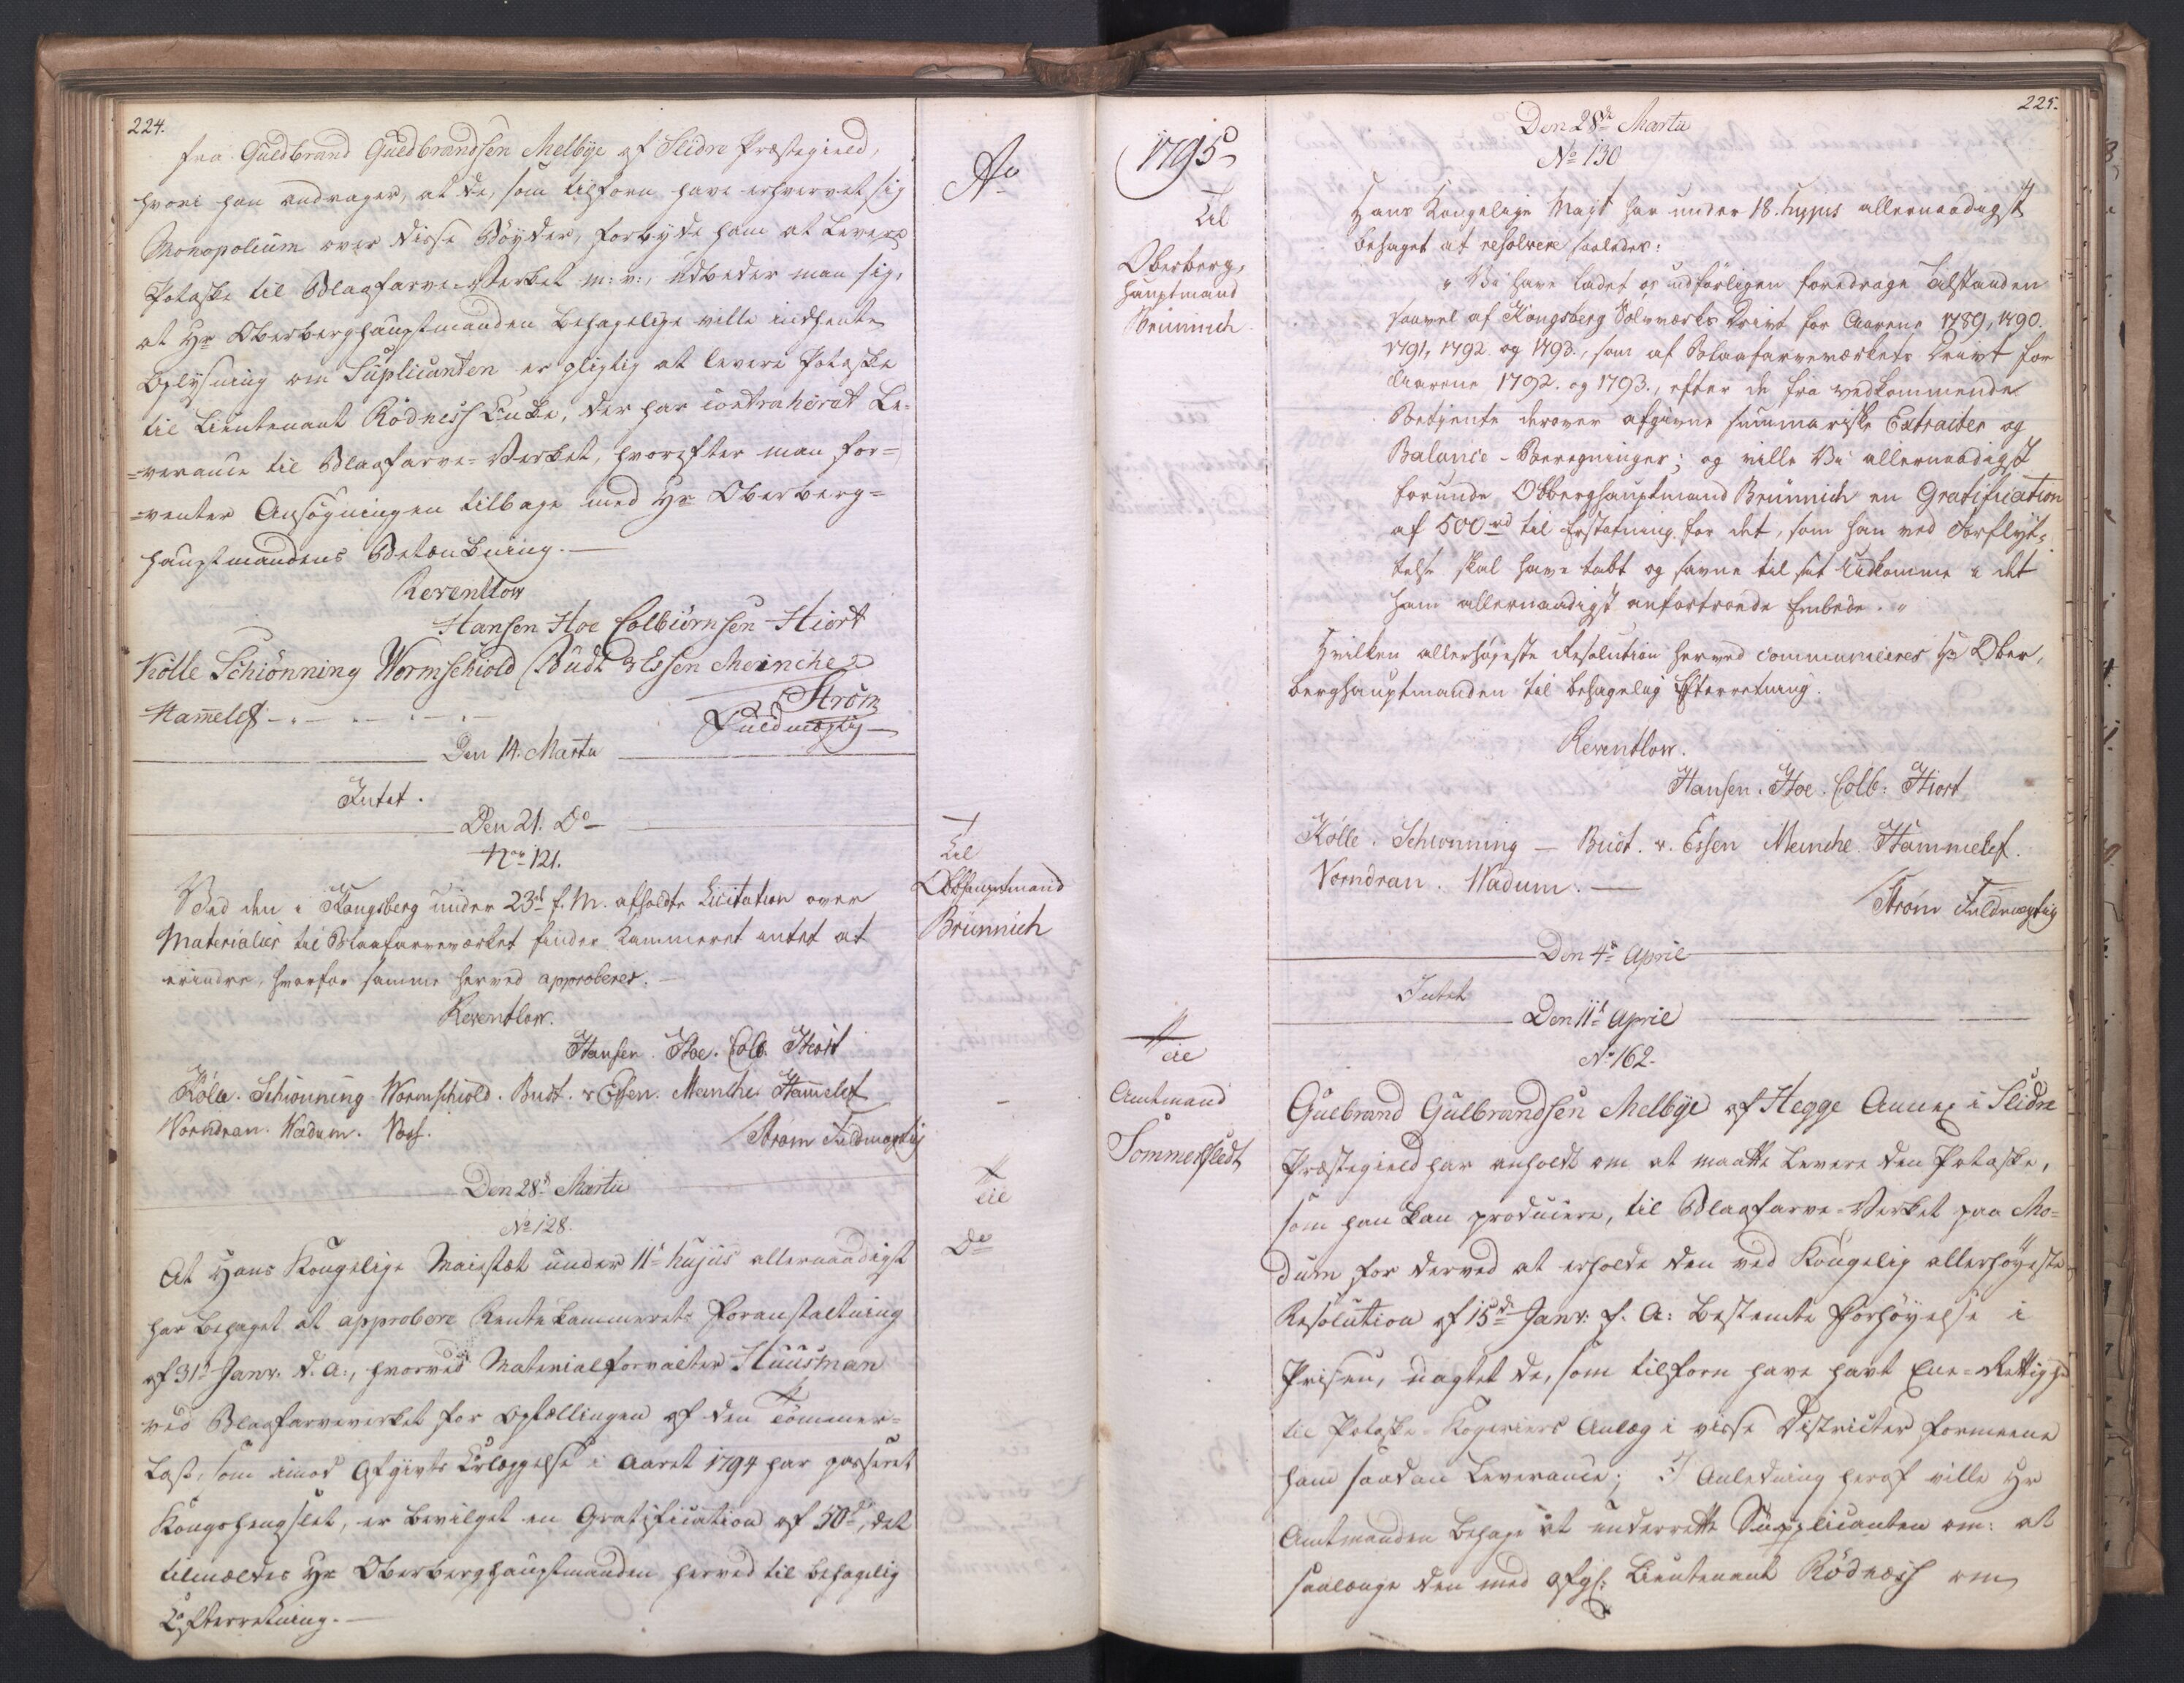 224.
fra Guldbrand Guldbrandsen Melbye af Slidre Præstegield,
hvori han andrager, at de, som tilforn have erhvervet sig
Monopolium over disse Bøyder, forbyde ham at levere
Potaske til Blaafarve-Verket m: v:, udbeder man sig,
at Hr Oberberghauptmanden behageligt ville indhente
Oplysning om Suplicanten er pligtig at levere Potaske
til Lieutenant Rödness Enke, der har contraheret Le-
=verance til Blaafarve-Verket, hvorefter man for=
=venter Ansøgningen tilbage med Hr Oberberg=
hauptmandens Betænkning.—
Reventlow
Hansen Hoe Colbiörnsen Hiort
Kölle Schiönning Wormschiold Budt v Essen Meinche
Ström
Ham̄elef - . - . - . - . -
Fuldmægtig —
Den 14. Martii
Intet.
Den 21. Do
No 121.
Ved den i Kongsberg under 23d f. M. afholdte Licitation over
Materialier til Blaafarveværket finder Kammeret intet at
erindre, hvorfor samme herved approberes. —
Reventlow.
Hansen. Hoe. Colb. Hiort
Kölle. Schiönning. Wormschiold. Budt. v Essen. Meinche. Ham̄elef
Vorndran. Wadum. Voss.
Ström Fuldmægtig
Den 28d Martii
No 128.
At Hans Kongelige Maiestæt under 11d hujus allernaadigst
har behaget at approbere Rentekammerets Foranstaltning
af 31d Janv. d. A:, hvorved Materialforvalter Huusman
ved Blaafarveverket for Optællingen af den Tömmer-
last, som imod Afgivts Erlæggelse i Aaret 1794 har passeret
Kongshengslet, er bevilget en Gratification af 50rd, det
tilmeldes Hr Oberberghauptmanden herved til behagelig
Efterretning. —
Ao
Til
Obhauptmand
Brünnich
Til
Do
1795
Til
Oberberg-
hauptmand
Brünnich.
Til
Amtmand
Sommerfeldt
225.
Den 28de Martii
No 130
Hans Kongelige Mayt har under 18. hujus allernaadigst
behaget at resolvere saaledes:
„ Vi have ladet os udførligen foredrage Tilstanden
saavel af Kongsberg Sölvværks Drivt for Aarene 1789, 1790.
1791, 1792. og 1793., som af Blaafarveværkets Drivt for
Aarene 1792. og 1793., efter de fra vedkommende
Betjente derover afgivne summariske Extraiter og
Balance-Beregninger; og ville Vi allernaadigst
forunde Obberghauptmand Brünnich en Gratification
af 500rd til Erstatning for det, som han ved Forflyt-
telse skal have tabt og savne til sit Udkomme i det
ham allernaadigst anfortroede Embede. „
Hvilken allerhøyeste Resolution herved communiceres Hr Ober-
berghauptmanden til behagelig Efterretning.
Reventlow.
Hansen. Hoe. Colb: Hiort
Kölle. Schiönning — Budt. v. Essen Meinche. Hammelef.
Vorndran. Wadum. —
Ström Fuldmægtig
Den 4de April
Intet
Den 11d April
No 162.
Gulbrand Gulbrandsen Melbye af Hegge Annex i Slidre
Præstegield har anholdt om at maatte levere den Potaske,
som han kan producere, til Blaafarve-Verket paa Mo=
dum for derved at erholde den ved Kongelig allerhøyeste
Resolution af 15de Janv: f. A: bestemte Forhøyelse i
Prisen, uagtet de, som tilforn have havt Ene-Rettighed
til Potaske-Kogeriers Anlæg i visse Districter formeene
ham saadan Leverance; I Anledning heraf ville Hr
Amtmanden behage at underrette Supplicanten om: at
saalænge den med afgl: Lieutenant Rödness om